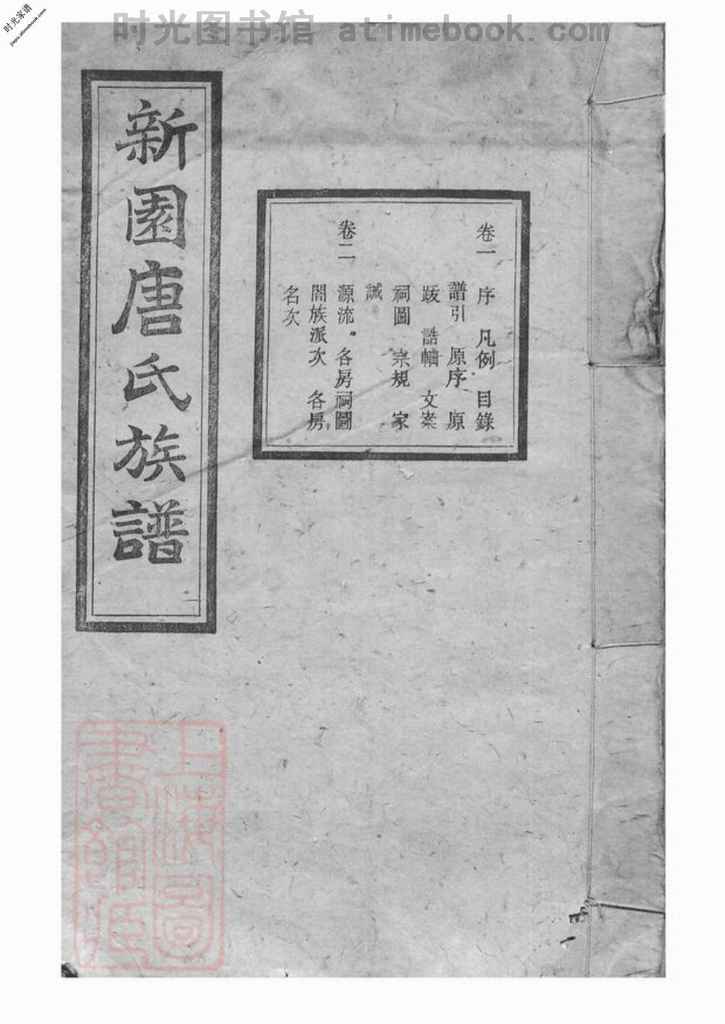 时光图书馆 atimebook.com
时光家谱
新園唐氏族譜
卷一 序 凡例 目錄
譜引 原序 原
跋 誥軸 文案
祠圖 宗規 家
誡
卷二 源流 各房祠圖
閤族派次 各房
名次
上海圖
書館藏